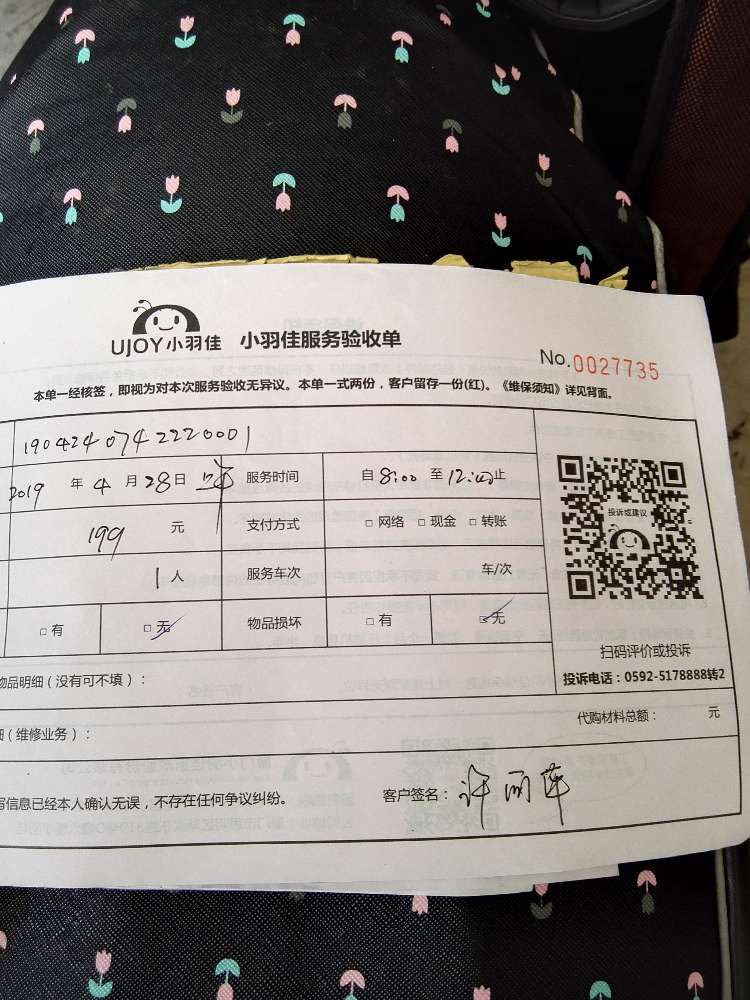 UJOY小羽佳 小羽佳服务验收单
No.0027735
本单一经核签，即视为对本次服务验收无异议。本单一式两份，客户留存一份(红)。《维保须知》详见背面。
1904240742220001
2019 年 4 月 28 日 服务时间 自 8:00 至 12:00 止
199 元 支付方式 □ 网络 □ 现金 □ 转账
1 人 服务车次 车/次
□ 有 □ 无 物品损坏 □ 有 □ 无
投诉或建议
扫码评价或投诉
投诉电话：0592-5178888转2
物品明细（没有可不填）：
代购材料总额： 元
细（维修业务）：
写信息已经本人确认无误，不存在任何争议纠纷。
客户签名：许丽萍